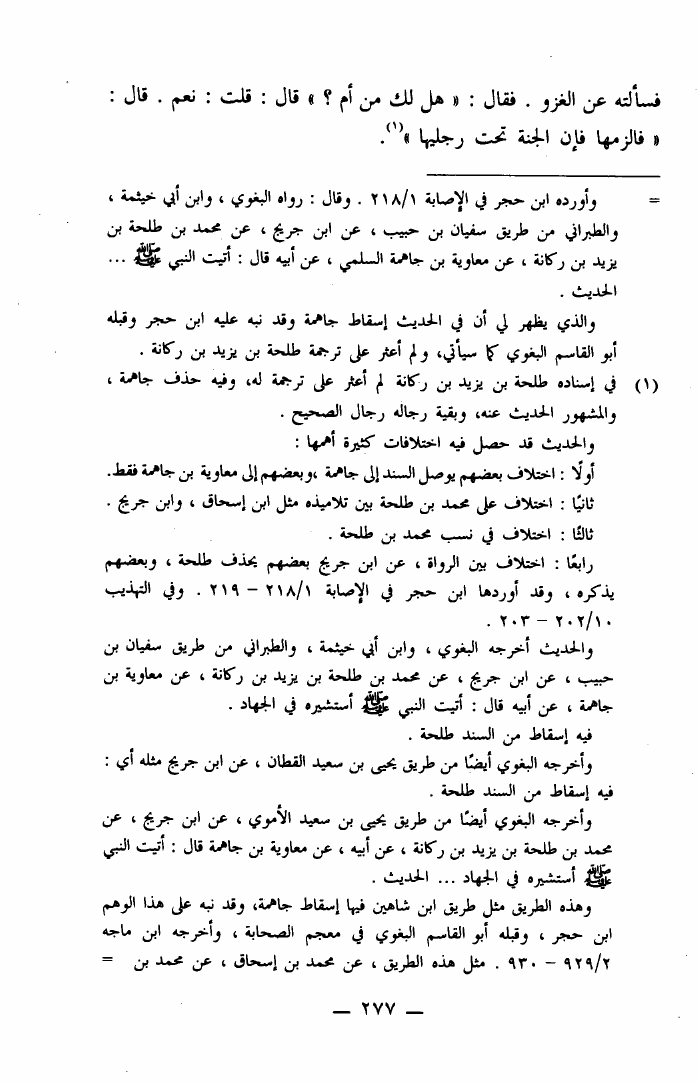 فسألته عن الغزو . فقال : « هل لك من أم ؟ » قال : قلت : نعم . قال :
« فالزمها فإن الجنة تحت رجليها »(١).
= وأورده ابن حجر في الإصابة ٢١٨/١ . وقال : رواه البغوي ، وابن أبي خيثمة ،
والطبراني من طريق سفيان بن حبيب ، عن ابن جريج ، عن محمد بن طلحة بن
يزيد بن ركانة ، عن معاوية بن جاهمة السلمي ، عن أبيه قال : أتيت النبي ﷺ ...
الحديث .
والذي يظهر لي أن في الحديث إسقاط جاهمة وقد نبه عليه ابن حجر وقبله
أبو القاسم البغوي كما سيأتي، ولم أعثر على ترجمة طلحة بن يزيد بن ركانة .
(١) في إسناده طلحة بن يزيد بن ركانة لم أعثر على ترجمة له، وفيه حذف جاهمة ،
والمشهور الحديث عنه، وبقية رجاله رجال الصحيح .
والحديث قد حصل فيه اختلافات كثيرة أهمها :
أولًا : اختلاف بعضهم يوصل السند إلى جاهمة ،وبعضهم إلى معاوية بن جاهمة فقط.
ثانيًا : اختلاف على محمد بن طلحة بين تلاميذه مثل ابن إسحاق ، وابن جريج .
ثالثًا : اختلاف في نسب محمد بن طلحة .
رابعًا : اختلاف بين الرواة ، عن ابن جريج بعضهم يحذف طلحة ، وبعضهم
يذكره ، وقد أوردها ابن حجر في الإصابة ٢١٨/١ – ٢١٩ . وفي التهذيب
٢٠٢/١٠ – ٢٠٣ .
والحديث أخرجه البغوي ، وابن أبي خيثمة ، والطبراني من طريق سفيان بن
حبيب ، عن ابن جريج ، عن محمد بن طلحة بن يزيد بن ركانة ، عن معاوية بن
جاهمة ، عن أبيه قال : أتيت النبي ﷺ أستشيره في الجهاد .
فيه إسقاط من السند طلحة .
وأخرجه البغوي أيضًا من طريق يحيى بن سعيد القطان ، عن ابن جريج مثله أي :
فيه إسقاط من السند طلحة .
وأخرجه البغوي أيضًا من طريق يحيى بن سعيد الأموي ، عن ابن جريج ، عن
محمد بن طلحة بن يزيد بن ركانة ، عن أبيه ، عن معاوية بن جاهمة قال : أتيت النبي
ﷺ أستشيره في الجهاد ... الحديث .
وهذه الطريق مثل طريق ابن شاهين فيها إسقاط جاهمة، وقد نبه على هذا الوهم
ابن حجر ، وقبله أبو القاسم البغوي في معجم الصحابة ، وأخرجه ابن ماجه
٩٢٩/٢ – ٩٣٠ . مثل هذه الطريق ، عن محمد بن إسحاق ، عن محمد بن =
— ٢٧٧ —